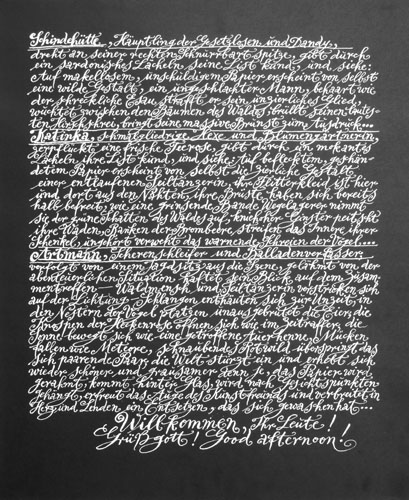 Schindehütte, Häuptling der Gesetzlosen und Dandy,
dreht an seiner rechten Schnurrbartspitze, gibt durch
ein sardonisches Lächeln seine List kund, und siehe:
Auf makellosem, unschuldigem Papier erscheint von selbst
eine wilde Gestalt, ein ungeschlachter Mann, behaart wie
der schreckliche Esau, strafft er sein unzierliches Glied,
zwischen den Bäumen des Waldes, brüllt
eine massive Brunst zum Ausdruck...
Katinka, schmalgliedrige Hexe und Blumenzartnerin,
zerpflückt eine frische Teerose, gibt durch ein mokantes
Lächeln ihre List kund, und siehe: Auf beflecktem, geschändetem
Papier erscheint von selbst die zierliche Gestalt
einer entlaufenen Seiltänzerin, ihr Flitterkleid ist hier
und dort aus den Nähten, ihre Brüste haben sich bereits
halb befreit, wie eine grinsende Bande Wegelagerer nimmt
sie der grüne Schatten des Waldes auf, kniehoher Ginster peitscht
ihre Waden, Ranken der Brombeere streifen das Innere ihrer
Schenkel, ungehört verweht das warnende Schreien der Vögel...
Artmann, Scherenschleifer und Balladenverfasser,
verfolgt von einem Jagdsitz aus die Szene, gelähmt von der
abenteuerlichen Situation haftet sein Blick auf dem Zusammentreffen
Waldmensch und Seiltänzerin verstricken sich
auf der Lichtung, Schlangen enthäuten sich zur Unzeit, in
den Nestern der Vögel platzen unausgebrütet die Eier, die
Knospen der Heckenrose öffnen sich wie im Zeitraffer, die
Sonne bewegt sich wie eine getroffene Auerhenne, Mücken
fallen wie Meteore, schnaubendes Rotwild überspringt das
sich paarende Paar, die Welt stürzt ein und erhebt sich
wieder schöner und grausamer denn je, das Papier wird
gerahmt, kommt hinter Glas, wird nach Gesichtspunkten
gehängt, erfreut das Auge des Kunstfreunds und verbreitet in
Herz und Lenden ein Entsetzen, das sich gewaschen hat...
Willkommen, Ihr Leute!
Grüß gott! Good afternoon!